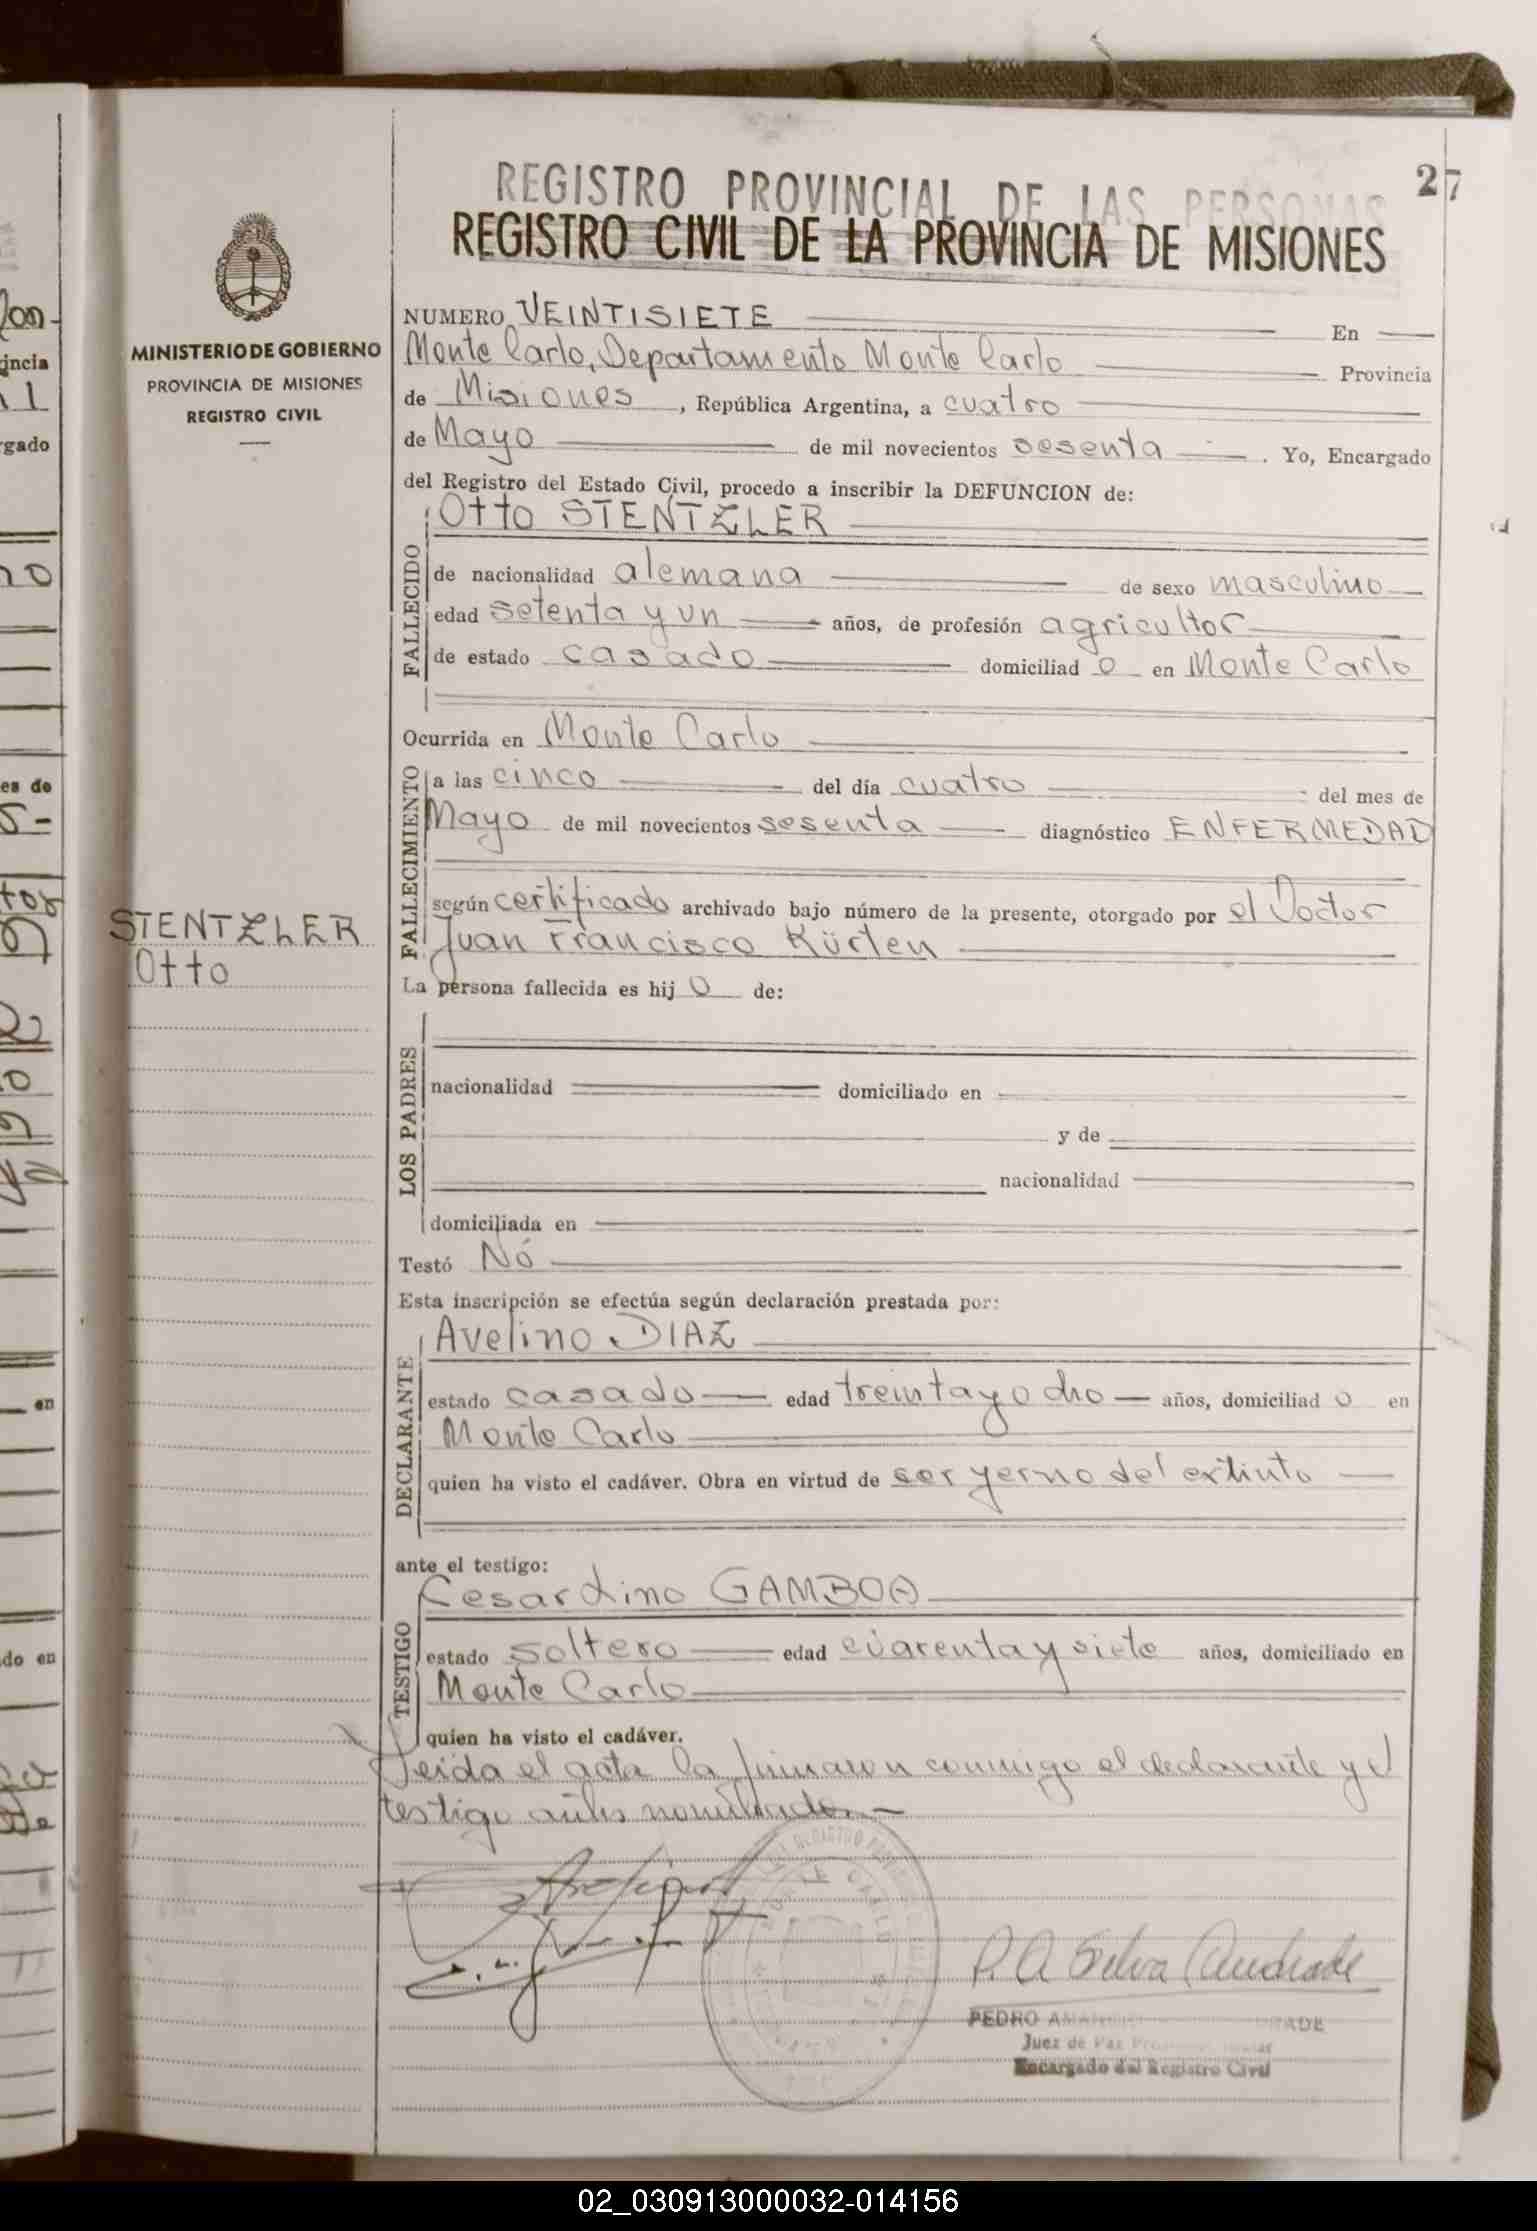 27
REGISTRO PROVINCIAL DE LAS PERSONAS
REGISTRO CIVIL DE LA PROVINCIA DE MISIONES
MINISTERIO DE GOBIERNO
PROVINCIA DE MISIONES
REGISTRO CIVIL
NUMERO VEINTISIETE En
Monte Carlo, Departamento Monte Carlo Provincia
de Misiones, República Argentina, a cuatro
de Mayo de mil novecientos sesenta. Yo, Encargado
del Registro del Estado Civil, procedo a inscribir la DEFUNCION de:
FALLECIDO
Otto STENTZLER
de nacionalidad alemana de sexo masculino
edad setenta y un años, de profesión agricultor
de estado casado domiciliad o en Monte Carlo
Ocurrida en Monte Carlo
FALLECIMIENTO
a las cinco del día cuatro del mes de
Mayo de mil novecientos sesenta diagnóstico ENFERMEDAD
según certificado archivado bajo número de la presente, otorgado por el Doctor
Juan Francisco Kürten
STENTZLER
Otto
La persona fallecida es hij o de:
LOS PADRES
nacionalidad domiciliado en
y de
nacionalidad
domiciliada en
Testó Nó
Esta inscripción se efectúa según declaración prestada por:
DECLARANTE
Avelino DIAZ
estado casado edad treinta y ocho años, domiciliad o en
Monte Carlo
quien ha visto el cadáver. Obra en virtud de ser yerno del extinto
ante el testigo:
TESTIGO
Cesardino GAMBOA
estado soltero edad cuarenta y siete años, domiciliado en
Monte Carlo
quien ha visto el cadáver.
Leida el acta la firmaron conmigo el declarante y el
testigo antes nombrado.
P. A. Silva Andrade
PEDRO
Juez de Paz
Encargado del Registro Civil
02_030913000032-014156